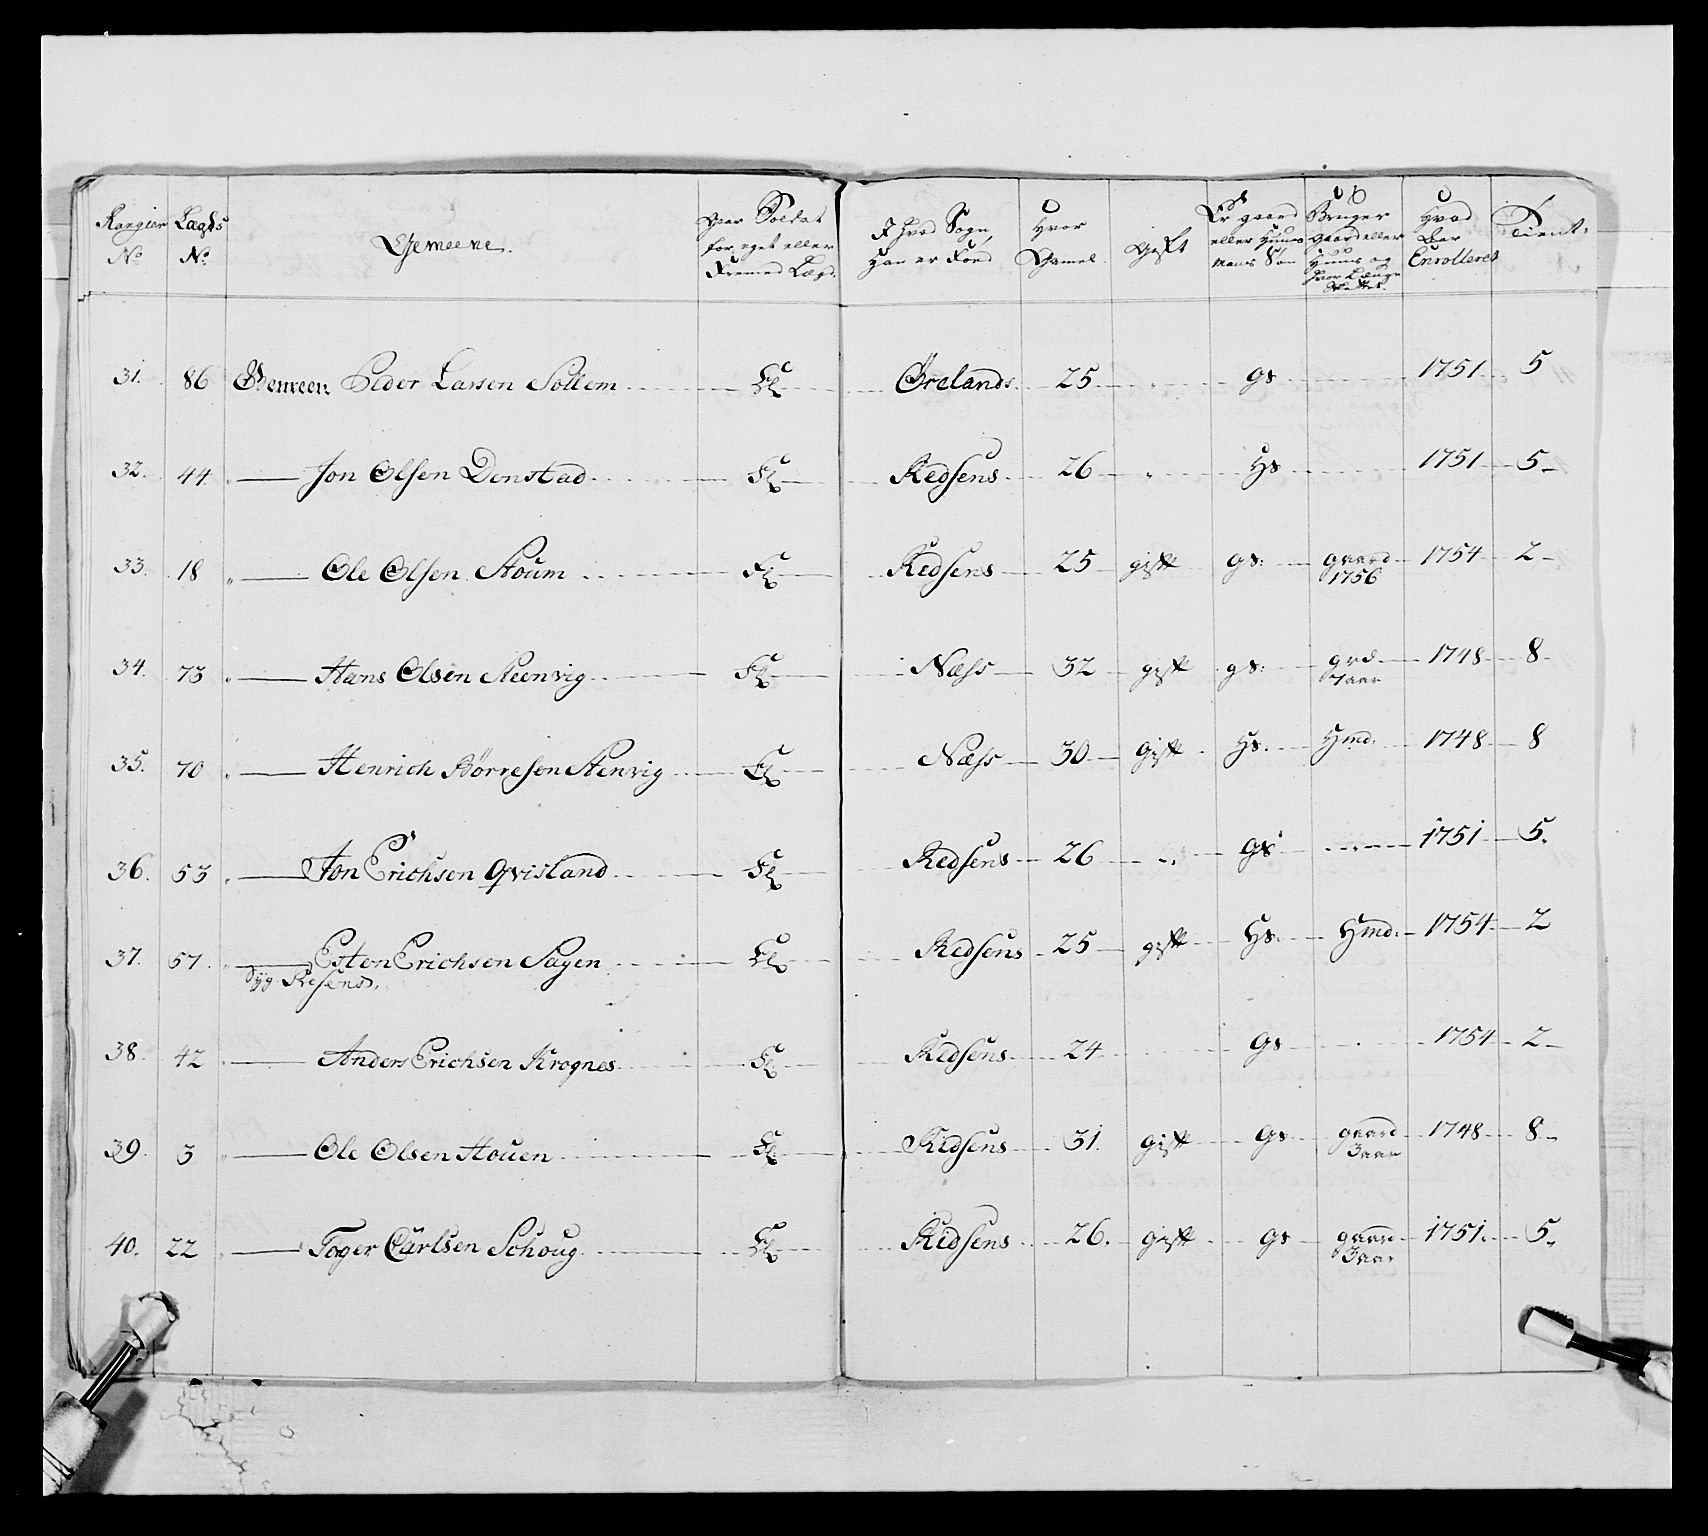 Rangier No | Lægds No | Gemeene. | Hvor Soldat for eget eller Fremed Lægd. | I hvad Sogn, han er Föd | Hvor Gamel | Gift | Er gaard eller Huus mans Søn | Bruger gaard eller Huus og hvor Længe | Hvad Aar Enrolleret | Tient.
31. 86 Gemeen: Peder Larsen Sollem El Örelands 25 gs 1751 5
32. 44 Jon Olsen Donstad Fl Redsens 26 Hs 1751 5
33. 18 Ole Olsen Houm Fl Redsens 25 gift gs: gaard 1756 1754 2
34. 73 Hans Olsen Steenvig Fl Næss 32 gift gs: grd 7 aar 1748 8
35. 70 Henrich Börresen Stenvig El Næss 30 Gift Hs. Hmd: 1748 8
36. 53 Jon Erichsen Qvisland Fl Redsens 26 gs 1751 5.
37. 57 Esten Erichsen Sagen El Redsens 25 gift Hs. Hmd. 1754 2
Syg Resens.
38. 42 Anders Erichsen Krognes Fl Redsens 24 Gs 1754 2
39. 3 Ole Olsen Houen Fl Redsens 31. gift Gs gaard 3 aar 1748 8
40. 22 Toger Carlsen Schoug El Redsens 26. gift gs gaard 3 aar 1751. 5.